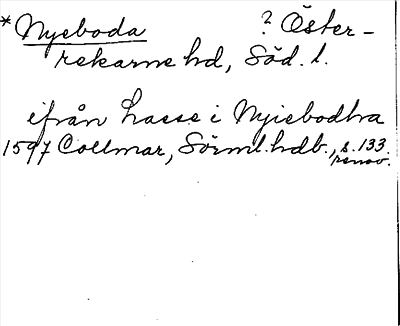 *Nyeboda ? Öster-
rekarne hd, Söd. l.
ifrån Lasse i Nyiebodha
1597 Collmar, Sörml. hdb., s. 133.
renov.